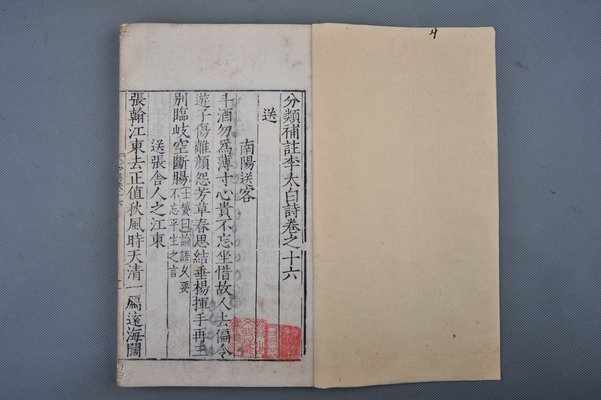 分類補註李太白詩卷之十六
送
南陽送客
斗酒勿為薄寸心貴不忘坐惜故人去偏令
遊子傷離顏怨芳草春思結垂楊揮手再三
別臨岐空斷腸士贇曰論語久要不忘平生之言
送張舍人之江東
張翰江東去正值秋風時天清一鴈遠海闊